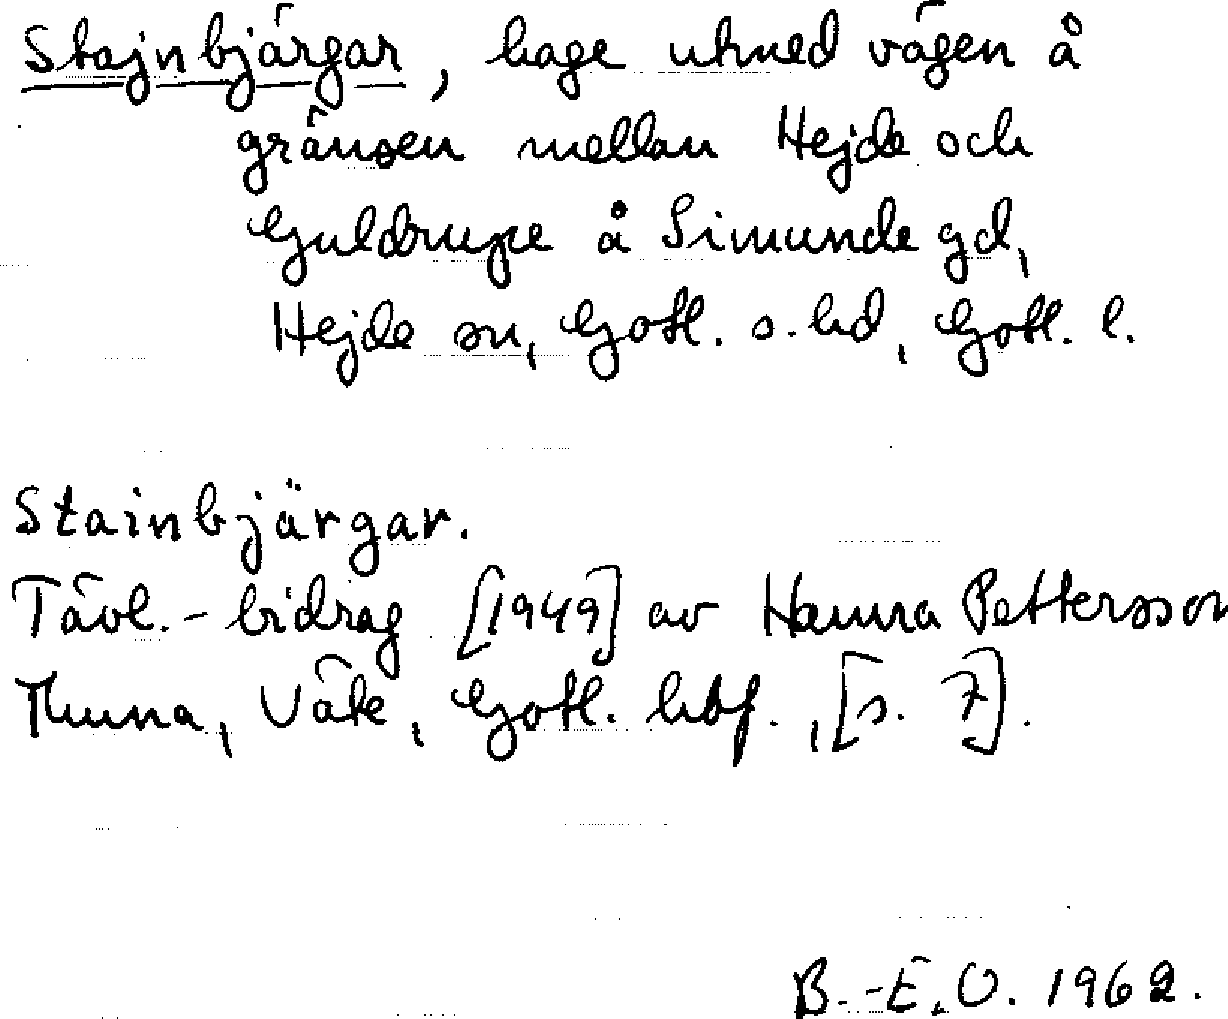 Stajnbjärgar, hage utmed vägen å
gränsen mellan Hejde och
Guldrupe å Simunde gd,
Hejde sn, Gotl. s. hd, Gotl. l.
Stainbjärgar.
Tävl.-bidrag [1949] av Hanna Pettersson
Muna, Väte, Gotl. hbf., [s. 7].
B.-E.O. 1962.